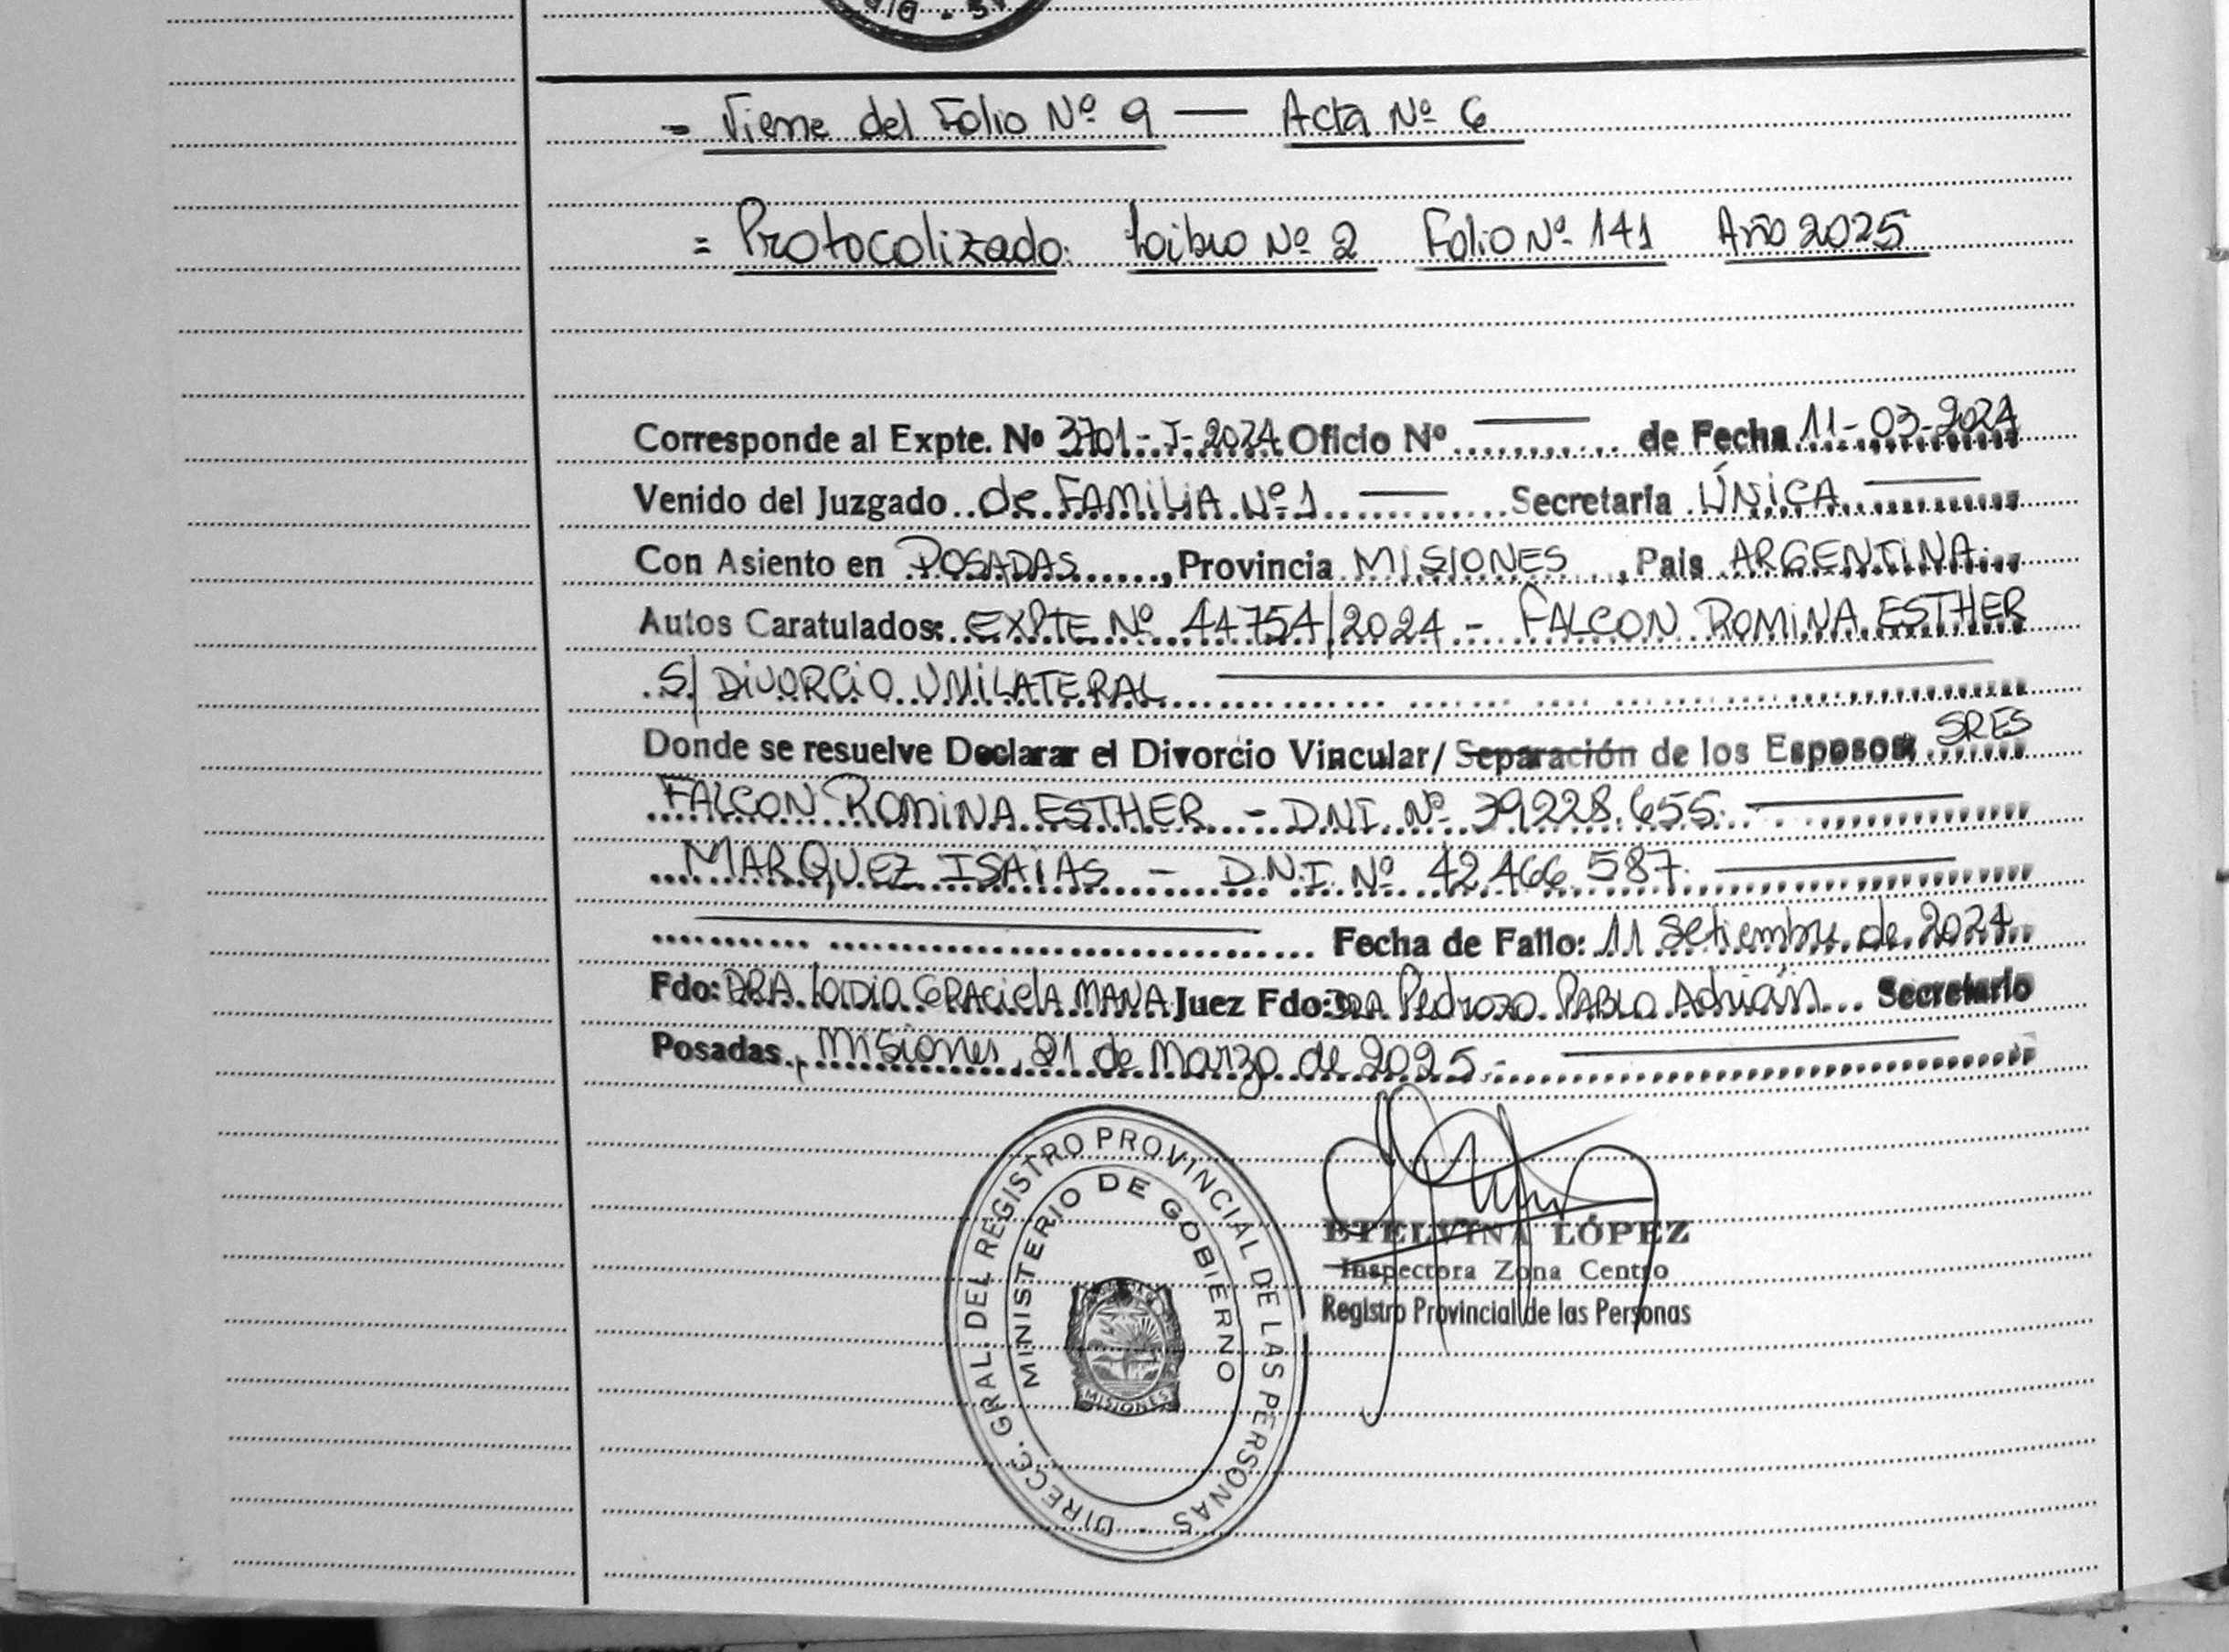 - Viene del Folio Nº 9 — Acta Nº 6
= Protocolizado: Loibro Nº 2 Folio Nº 141 Año 2025
Corresponde al Expte. Nº 3701-J-2024 Oficio Nº ——— de Fecha 11-03-2024
Venido del Juzgado de FAMILIA Nº 1 —— Secretaría ÚNICA ——
Con Asiento en POSADAS, Provincia MISIONES, País ARGENTINA
Autos Caratulados: EXPTE Nº 44754/2024 - FALCON ROMINA ESTHER
S/ DIVORCIO UNILATERAL ———
Donde se resuelve Declarar el Divorcio Vincular/ Separación de los Esposos SRES
FALCON ROMINA ESTHER - D.N.I. Nº 39.228.655. ———
MARQUEZ ISAIAS - D.N.I. Nº 42.466.587. ———
——— Fecha de Fallo: 11 Setiembre de 2024.
Fdo: DRA. GRACIELA MANA Juez Fdo: Pedrozo PABLO Adrián Secretario
Posadas, Misiones, 21 de Marzo de 2025.- ———
DIRECC. GRAL. DEL REGISTRO PROVINCIAL DE LAS PERSONAS
MINISTERIO DE GOBIERNO
MISIONES
ETELVINA LÓPEZ
Inspectora Zona Centro
Registro Provincial de las Personas